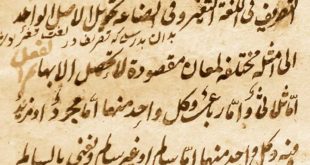 التصريف في اللغة التغيير وفي الصناعة تحويل الاصل الواحد
بدان بدرستيكه تصريف در لغت تغيير
الى امثلة مختلفة لمعان مقصودة لا تحصل الا بها
اما ثلاثي واما رباعي وكل واحد منهما اما مجرد او مزيد
فيه وكل واحد منهما اما سالم او غير سالم ونعني بالسالم